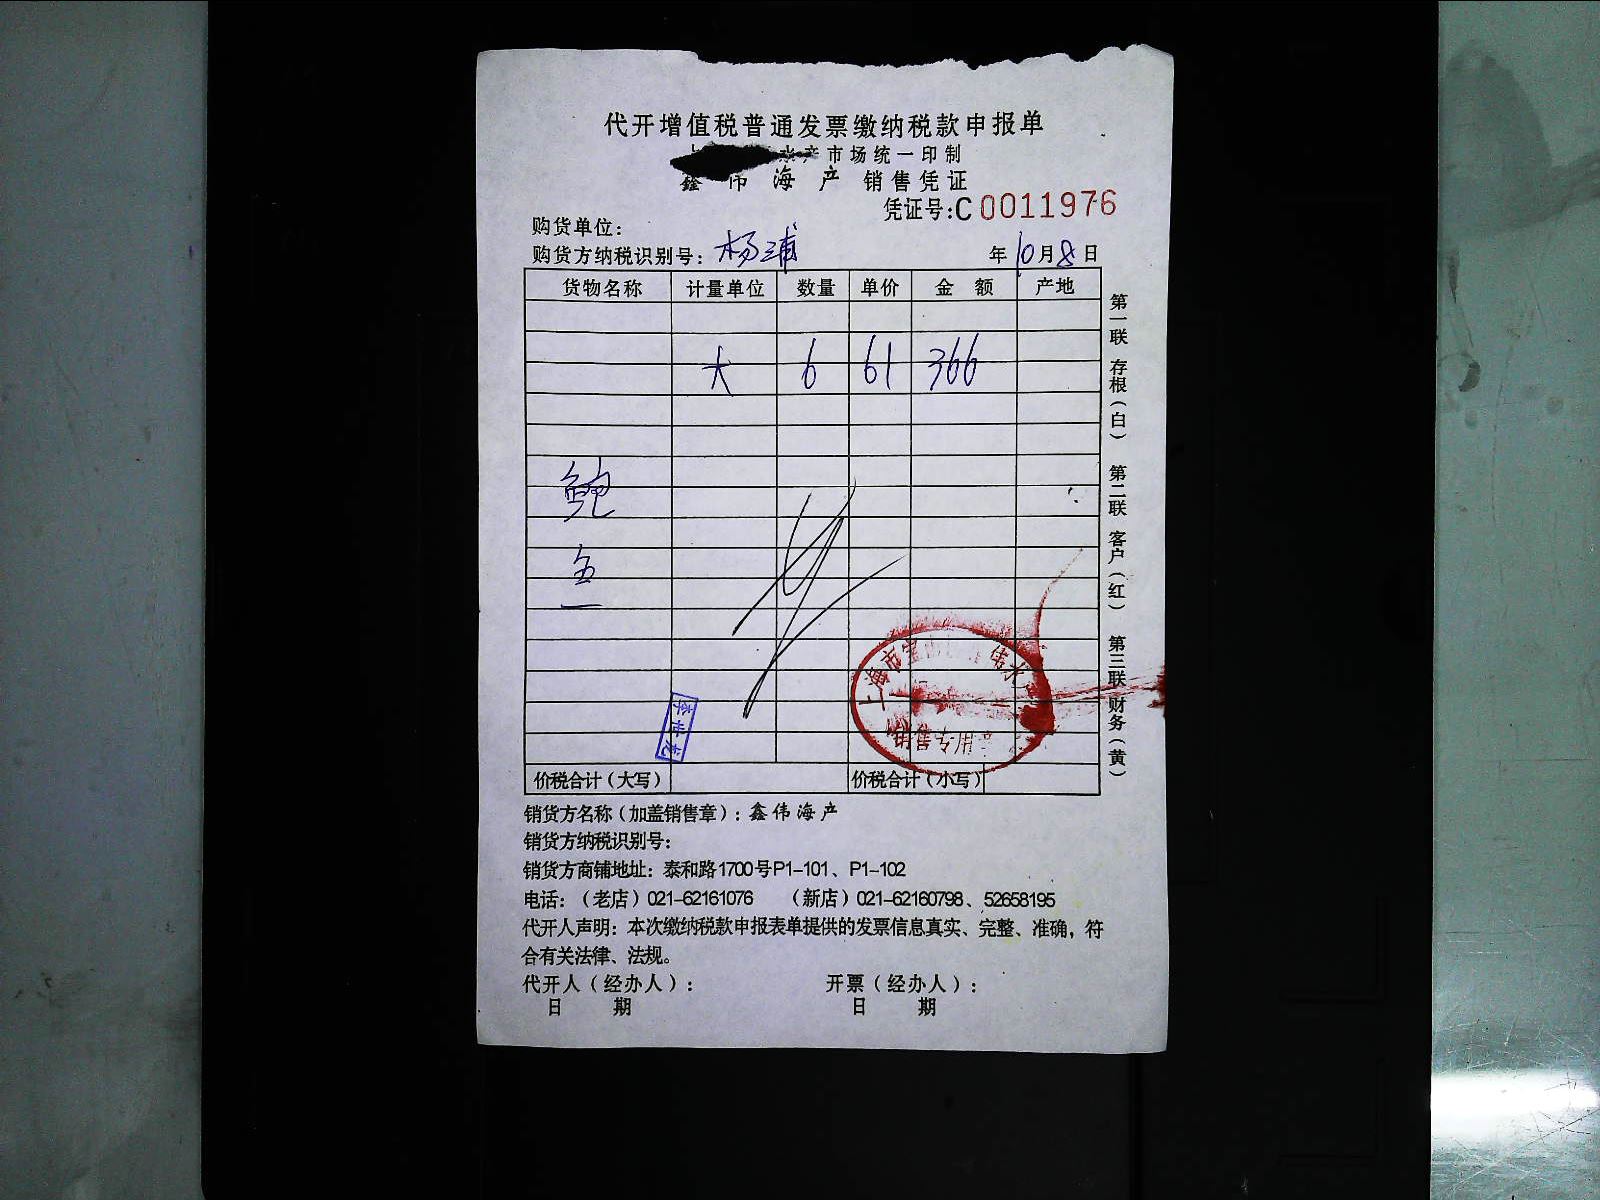 代开增值税普通发票缴纳税款申报单
水产市场统一印制
鑫伟海产 销售凭证
凭证号:C 0011976
购货单位:
购货方纳税识别号: 杨浦 年10月8日
货物名称 计量单位 数量 单价 金额 产地
大 6 61 366
鲍
鱼
李世龙
价税合计(大写) 价税合计(小写)
销货方名称(加盖销售章): 鑫伟海产
销货方纳税识别号:
销货方商铺地址: 泰和路1700号P1-101、P1-102
电话: (老店) 021-62161076 (新店) 021-62160798、52658195
代开人声明: 本次缴纳税款申报表单提供的发票信息真实、完整、准确, 符
合有关法律、法规。
代开人(经办人): 开票(经办人):
日 期 日 期
第一联 存根(白) 第二联 客户(红) 第三联 财务(黄)
上海市宝山 伟水